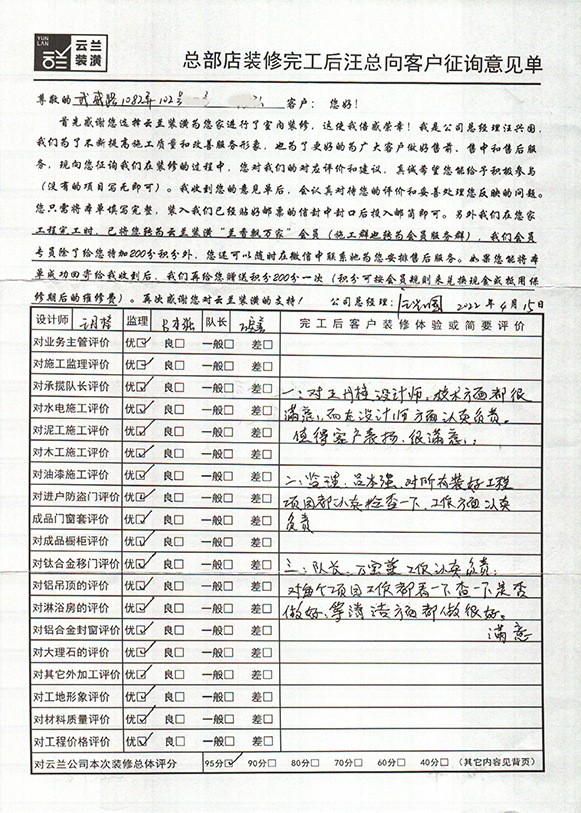 YUN LAN
云兰装潢
总部店装修完工后汪总向客户征询意见单
尊敬的 武威路1082弄102号 客户：您好！
首先感谢您选择云兰装潢为您家进行了室内装修，这使我倍感荣幸！我是公司总经理汪兴国，
我们为了不断提高施工质量和改善服务形象，也为了更好的为广大客户做好售前、售中和售后服
务，现向您征询我们在装修的过程中，您对我们的对应评价和建议，真诚希望您能给予积极参与
（没有的项目写无即可）。我收到您的意见单后，会认真对待您的评价和妥善处理您反映的问题。
您只需将本单填写完整，装入我们已经贴好邮票的信封中封口后投入邮筒即可。另外我们在您家
工程完工时，已将您转为云兰装潢“兰香飘万家”会员（施工群也转为会员服务群），我们会员
专员除了给您特加200分积分外，您还可以随时在微信中联系她为您安排售后服务。如果您能将本
单成功回寄给我收到后，我们再给您赠送积分200分一次（积分可按会员规则来兑换现金或抵用保
修期后的维修费）。再次感谢您对云兰装潢的支持！ 公司总经理： 汪兴国 2022年4月15日
设计师 监理 吕本强 队长 完工后客户装修体验或简要评价
对业务主管评价 优☑ 良□ 一般□ 差□
对施工监理评价 优☑ 良□ 一般□ 差□
对承揽队长评价 优☑ 良□ 一般□ 差□ 一：对王月桂设计师，技术方面都很
对水电施工评价 优☑ 良□ 一般□ 差□ 满意，而在设计师方面认真负责。
对泥工施工评价 优☑ 良□ 一般□ 差□ 值得客户表扬，很满意，
对木工施工评价 优☑ 良□ 一般□ 差□
对油漆施工评价 优☑ 良□ 一般□ 差□ 二：监理，吕本强，对所有装好工程
对进户防盗门评价 优☑ 良□ 一般□ 差□ 项目都认真检查一下，工作方面认真
成品门窗套评价 优☑ 良□ 一般□ 差□ 负责
对成品橱柜评价 优☑ 良□ 一般□ 差□
对钛合金移门评价 优☑ 良□ 一般□ 差□ 三：队长，万宝 工作认真负责，
对铝吊顶的评价 优☑ 良□ 一般□ 差□ 对每个项目工作都看一下查一下是否
对淋浴房的评价 优☑ 良□ 一般□ 差□ 做好，等清洁方面都做很好。
对铝合金封窗评价 优☑ 良□ 一般□ 差□ 满意
对大理石的评价 优☑ 良□ 一般□ 差□
对其它外加工评价 优☑ 良□ 一般□ 差□
对工地形象评价 优☑ 良□ 一般□ 差□
对材料质量评价 优☑ 良□ 一般□ 差□
对工程价格评价 优☑ 良□ 一般□ 差□
对云兰公司本次装修总体评分 95分☑ 90分□ 80分□ 70分□ 60分□ 40分□ （其它内容见背页）